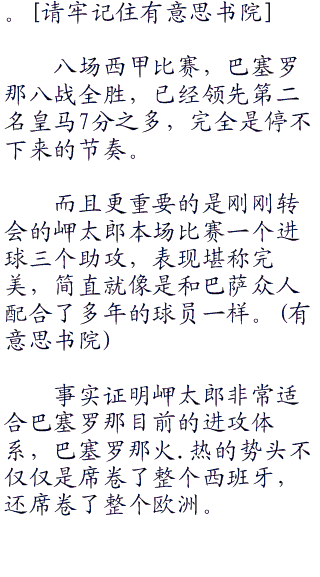 。[请牢记住有意思书院]
八场西甲比赛，巴塞罗
那八战全胜，已经领先第二
名皇马7分之多，完全是停不
下来的节奏。
而且更重要的是刚刚转
会的岬太郎本场比赛一个进
球三个助攻，表现堪称完
美，简直就像是和巴萨众人
配合了多年的球员一样。(有
意思书院)
事实证明岬太郎非常适
合巴塞罗那目前的进攻体
系，巴塞罗那火.热的势头不
仅仅是席卷了整个西班牙，
还席卷了整个欧洲。